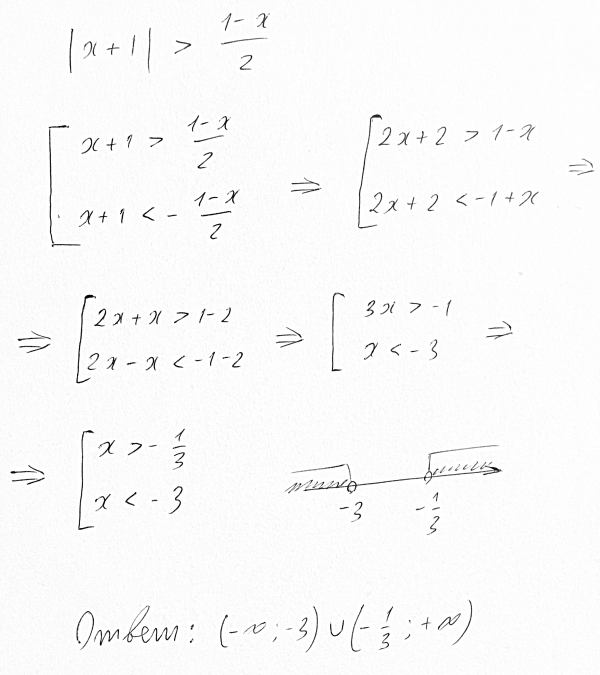 |x+1| > (1-x)/2
[ x+1 > (1-x)/2 ⇒ [ 2x+2 > 1-x ⇒
x+1 < - (1-x)/2 2x+2 < -1+x
⇒ [ 2x+x > 1-2 ⇒ [ 3x > -1 ⇒
2x-x < -1-2 x < -3
⇒ [ x > - 1/3
x < -3
-3 - 1/3
Ответ: (-∞; -3) ∪ (- 1/3; +∞)